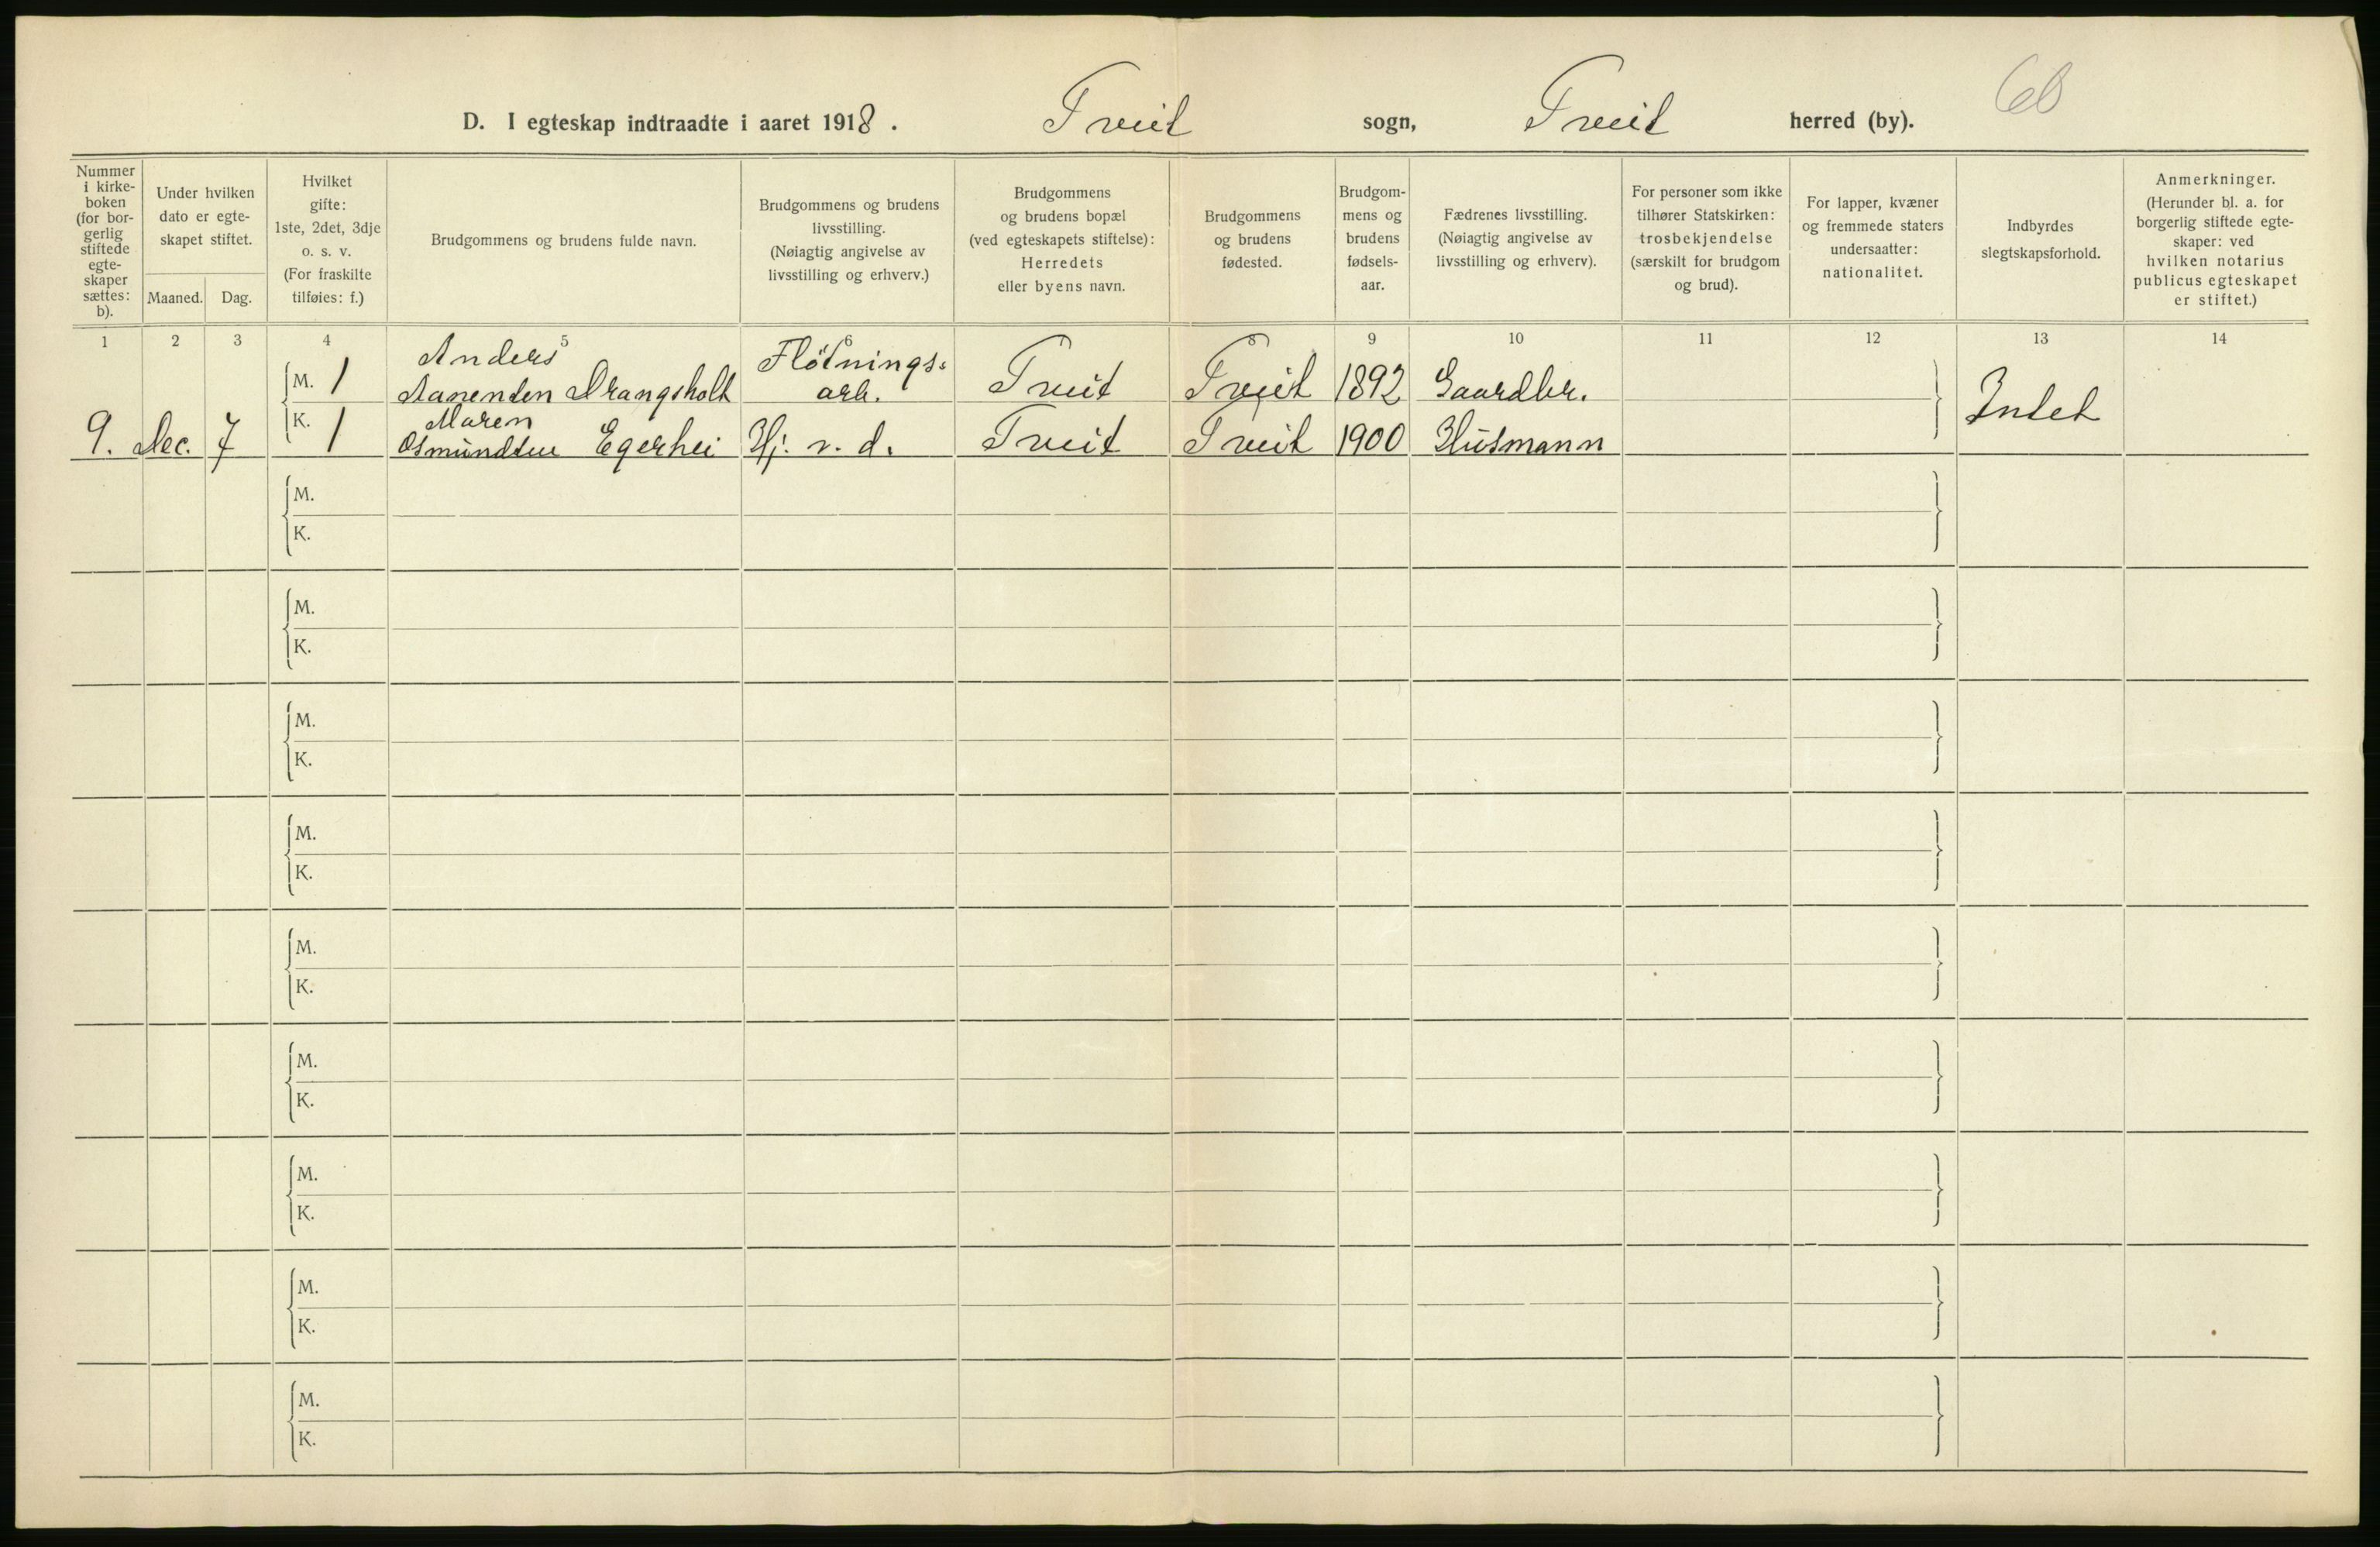 60
D. I egteskap indtraadte i aaret 1918. Tveit sogn, Tveit herred (by).
Nummer i kirke-boken (for bor-gerlig stiftede egte-skaper sættes: b).
Under hvilken dato er egte-skapet stiftet.
Maaned. Dag.
Hvilket gifte: 1ste, 2det, 3dje o. s. v. (For fraskilte tilføies: f.)
Brudgommens og brudens fulde navn.
Brudgommens og brudens livsstilling. (Nøiagtig angivelse av livsstilling og erhverv.)
Brudgommens og brudens bopæl (ved egteskapets stiftelse): Herredets eller byens navn.
Brudgommens og brudens fødested.
Brudgom-mens og brudens fødsels-aar.
Fædrenes livsstilling. (Nøiagtig angivelse av livsstilling og erhverv).
For personer som ikke tilhører Statskirken: trosbekjendelse (særskilt for brudgom og brud).
For lapper, kvæner og fremmede staters undersaatter: nationalitet.
Indbyrdes slegtskapsforhold.
Anmerkninger. (Herunder bl. a. for borgerlig stiftede egte-skaper: ved hvilken notarius publicus egteskapet er stiftet.)
1 2 3 4 5 6 8 9 10 11 12 13 14
M. 1 Anders Aanensen Drangsholt Fløtnings- arb. Tveit Tveit 1892 Gaardbr.
9. Dec. 7 K. 1 Maren Osmundsen Egerhei Hj. v. d. Tveit Tveit 1900 Husmann Intet
M.
K.
M.
K.
M.
K.
M.
K.
M.
K.
M.
K.
M.
K.
M.
K.
M.
K.